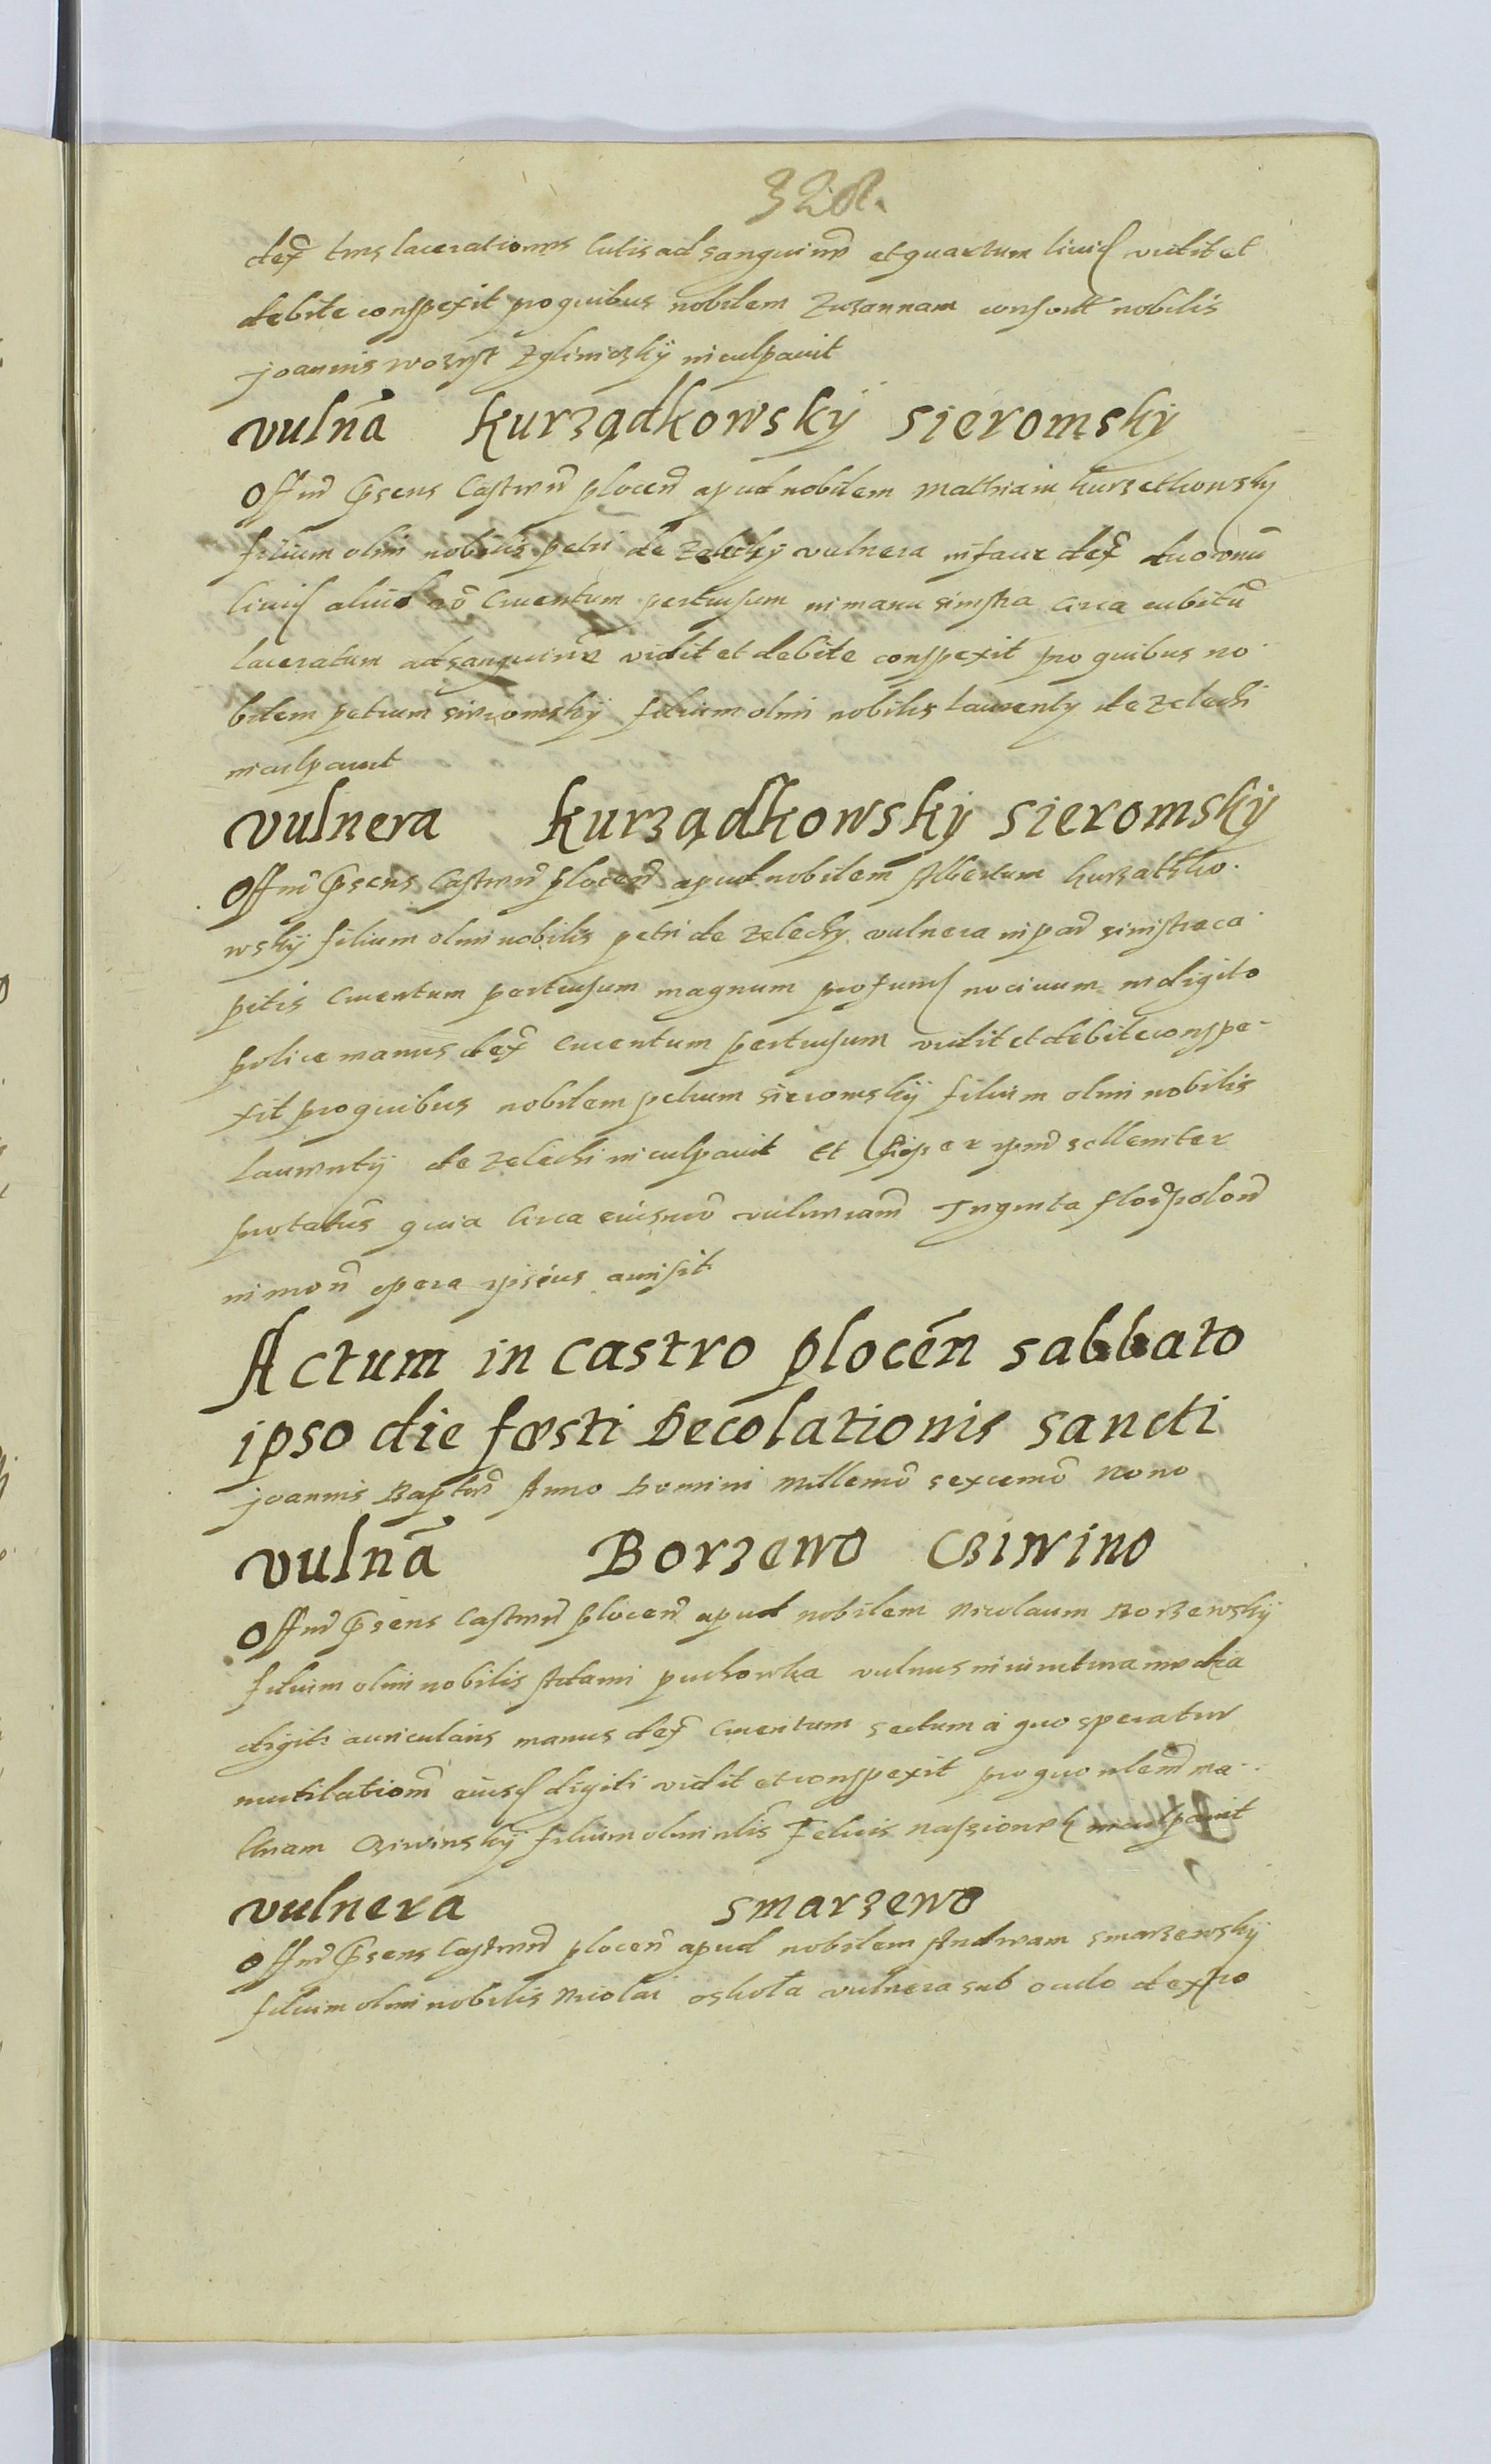 328.
dex tres lacerationes cutis ad sanguinem et quartum livid vidit et
debite conspexit pro quibus nobilem Zuzannam consort nobilis
Joannis Zgliniczkÿ inculpavit
vulnã Kurządkowskÿ Sieromskÿ
Offm pñsens Castren plocen apud nobilem Mathiam Kurzetkowsky
filium olim nobilis petri de Zelechÿ vulnera in faue dex duo unũ
livid aliud vo Cruentum pertusum in manu sinistra circa cubitũ
laceratum ad sanguinem vidit et debite conspexit pro quibus no
bilem petrum Sieromskÿ filium olim nobilis Laurenty de Zelechi
inculpavit
vulnera Kurządkowskÿ Sieromskÿ
Offm pñsens Castren plocen apud nobilem Albertum Kurzathko
wskÿ filium olim nobilis petri de Zelechy vulnera in par sinistra ca
pitis Cruentum pertusum magnum profund nocivum in digito
police manus dex Cruentum pertusum vidit et debite conspe-
xit pro quibus nobilem petrum Sieromskÿ filium olim nobilis
Laurentÿ de Zelechi inculpavit et super ipm sollemiter
protatus quia circa eiusmo vulneram Triginta flor polon
in mon opera ipsius amisit
Actum in castro plocén sabbato
ipso die fœsti Decolationis sancti
Joannis Baptæ Anno Domini Millemo sexcemo Nono
vulnã Borzewo Cziwino
Offm pñsens Castren plocen apud nobilem Nicolaum Borzewskÿ
filium olim nobilis Adami puchowka vulnus in iunctura media
digiti auricularis manus dex Cruentum sectum à quo speratur
mutilationem eiusd digiti vidit et conspexit pro quo nlem Ma-
thiam Cziwinskÿ filium olim nlis Felicis inculpavit
vulnera Smarzewo
Offm pñsens Castren plocen apud nobilem Andream Smarzewskÿ
filium olim nobilis Nicolai oskota vulnera sub oculo dextro